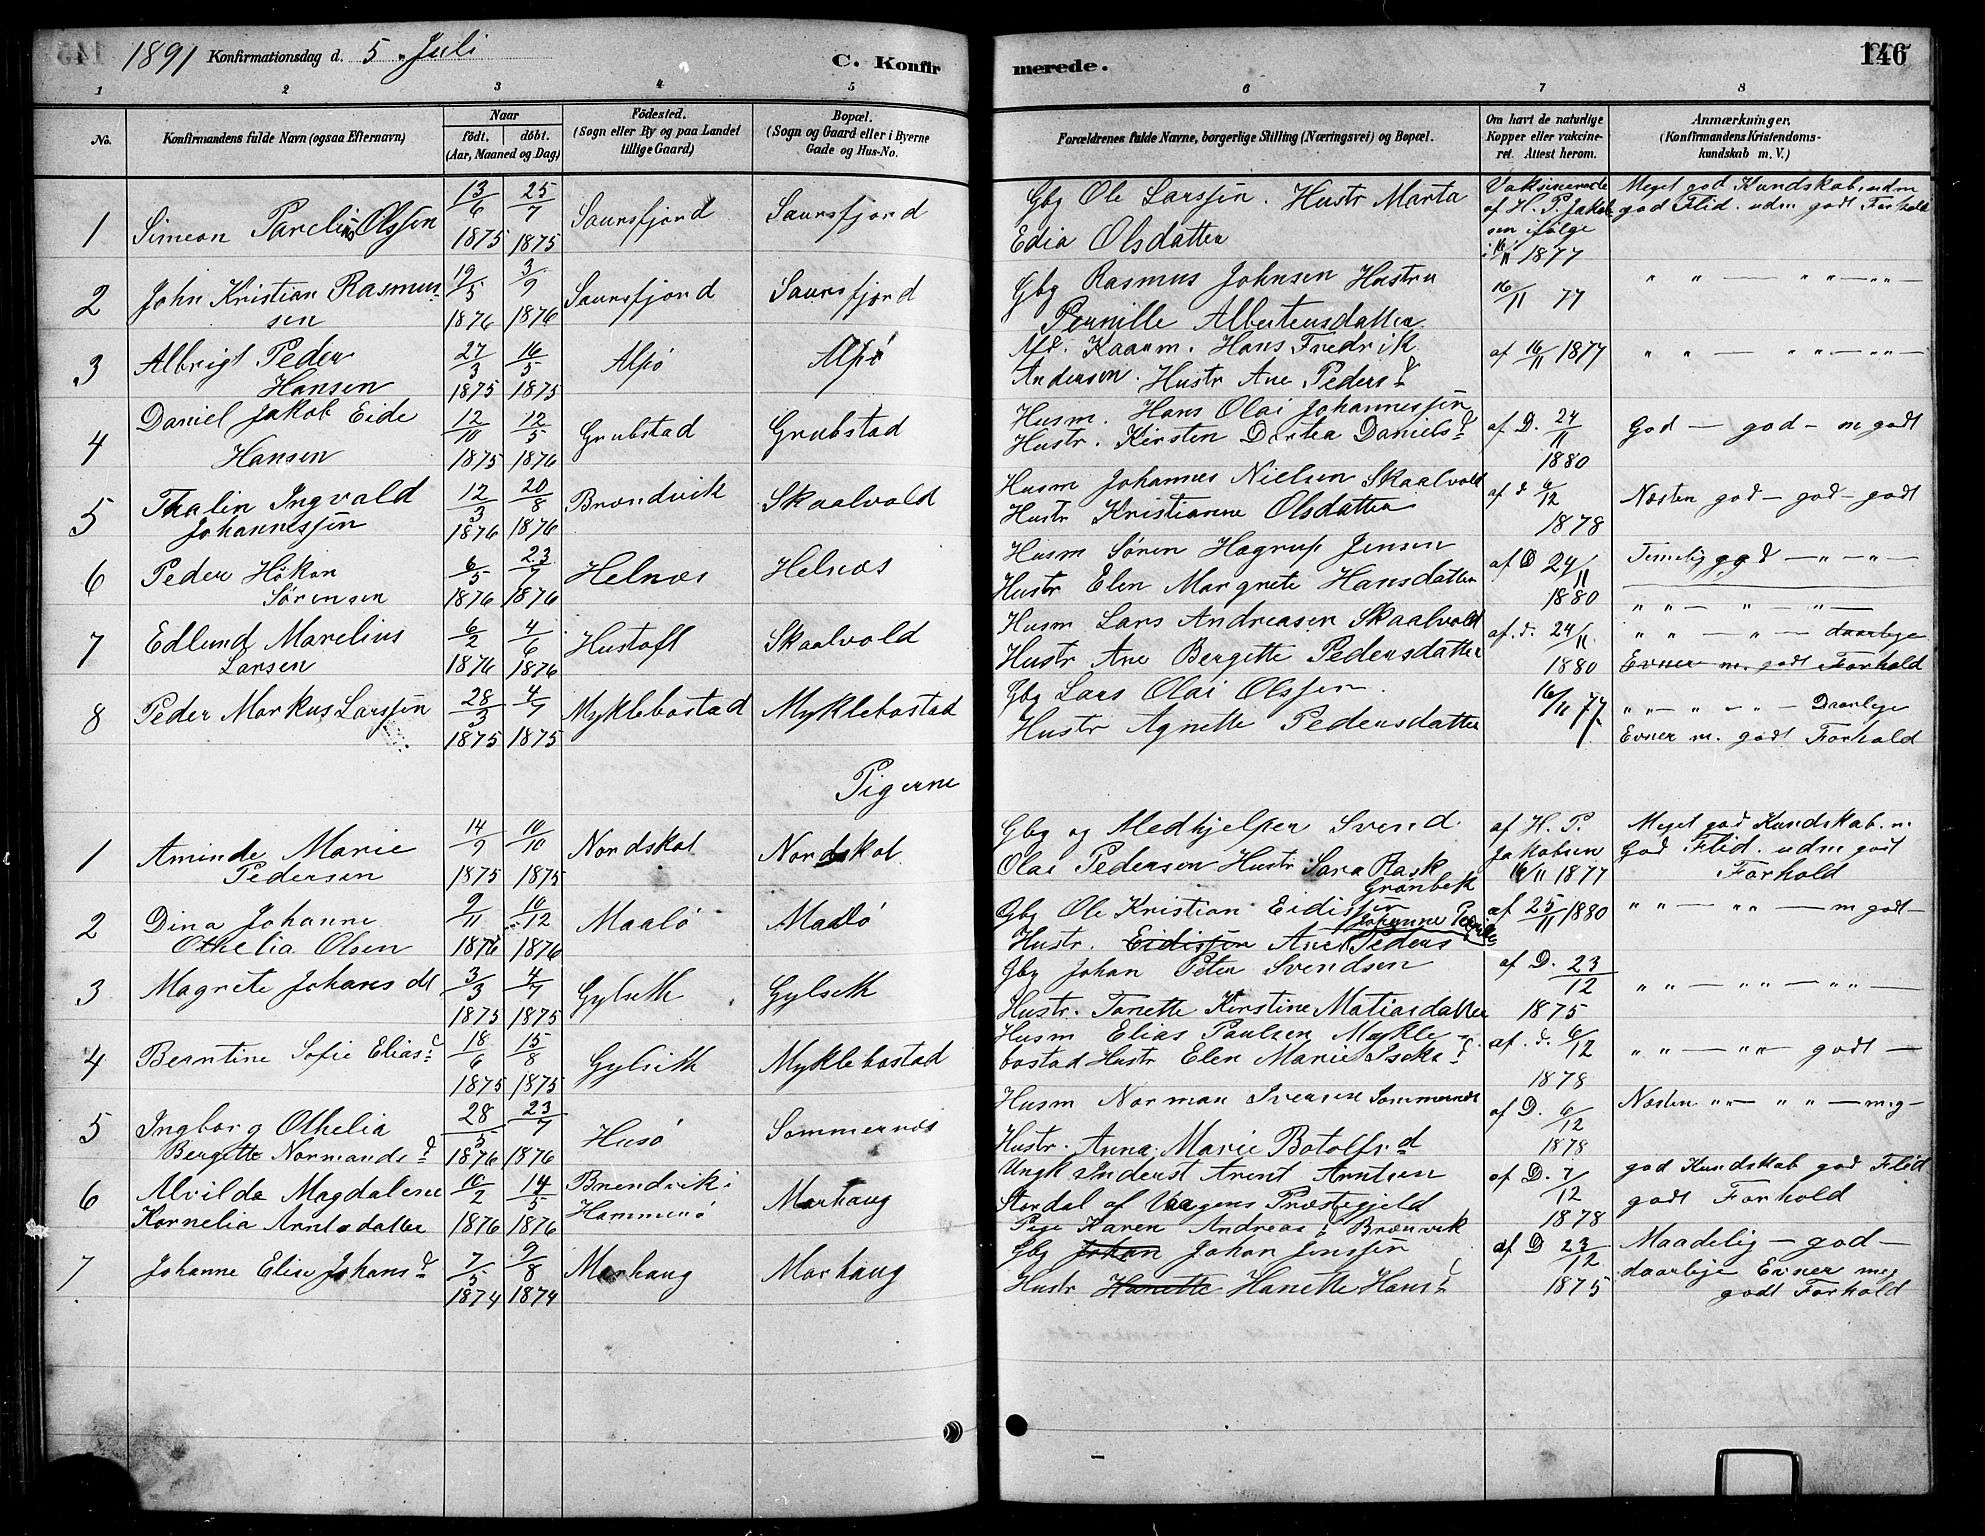 1891 Konfirmationsdag d. 5. Juli
C. Konfir
merede.
146
1 2 3 4 5 6 7 8
No.
Konfirmandens fulde Navn (ogsaa Efternavn)
Naar
födt. döbt.
(Aar, Maaned og Dag)
Födested.
(Sogn eller By og paa Landet
tillige Gaard)
Bopæl.
(Sogn og Gaard eller i Byerne
Gade og Hus-No.
Forældrenes fulde Navne, borgerlige Stilling (Næringsvei) og Bopæl.
Om havt de naturlige
Kopper eller vakcine-
ret. Attest herom.
Anmærkninger,
(Konfirmandens Kristendoms-
kundskab m. V.)
1 Simeon Parelius Olssen 13/6 1875 25/7 1875 Saursfjord Saursfjord
Gbg Ole Larssen. Hustr Marta
Edia Olsdatter
Vaksinerede
af H. P. Jakob
sen ifølge
16/11 1877
Meget god Kundskab, udm
god Flid. udm godt Forhold
2 John Kristian Rasmus-
sen 19/5 1876 3/9 1876 Saursfjord Saursfjord
Gbg Rasmus Johnsen Hustru
Pernille Albertensdatter
16/11 77
" " — " " — " —
3 Albrigt Peder
Hansen 27/3 1875 16/5 1875 Alpø Alpø
Afd. Kaarm. Hans Fredrik
Andersen. Hustr Ane Pedersd
af 16/11 1877
" " — " — " —
4 Daniel Jakob Eide
Hansen 12/10 1875 12/5 1876 Grubstad Grubstad
Husm. Hans Olai Johannessen
Hustr. Kirsten Dortea Danielsd
af D. 24/11 1880
God — god — m godt
5 Thalin Ingvald
Johannessen 12/3 1876 20/8 1876 Brændvik Skaalvold
Husm Johannes Nielsen Skaalvold
Hustr Kristianne Olsdatter
af d 6/12 1878
Næsten god — god — godt
6 Peder Håkon
Sørensen 6/5 1876 23/7 1876 Helnæs Helnæs
Husm Søren Hagrup Jensen
Hustr Elen Margrete Hansdatter
af D 24/11 1880
Temelig god — " — " —
" " — " — " —
7 Edlund Marelius
Larsen 6/2 1876 4/6 1876 Hustoft Skaalvold
Husm Lars Andreasen Skaalvold
Hustr Ane Bergitte Pedersdatter
af. d. 24/11 1880
" " — " — daarlige
Evner m. godt Forhold
8 Peder Markus Larssen 28/3 1875 4/7 1875 Myklebostad Myklebostad
Gbg Lars Olai Olssen.
Hustr Agnette Pedersdatter
16/11 77.
" " — " — " — Daarlige
Evner m. godt Forhold
Pigerne
1 Aminde Marie
Pedersen 14/9 1875 10/10 1875 Nordskot Nordskot
Gbg og Medhjelper Svend
Olai Pedersen Hustr Sara Rask
Grønbek
af H. P.
Jakobsen
16/11 1877
Meget god Kundskab. m.
God Flid. udm godt
Forhold
2 Dina Johanne
Othelia Olsen 9/11 1876 10/12 1876 Maalø Maalø
Gbg Ole Kristian Eidissen
Hustr. Eidissen Ane Johanne Peders
af 25/11 1880
" " — " " — m godt —
3 Magrete Johansdt 3/3 1875 4/7 1875 Gylseth Gylseth
Gbg Johan Peter Svendsen
Hustr. Tanette Kirstine Matiasdatter
af D. 23/12 1875
" " — " " — " " —
4 Berntine Sofie Eliasd 18/6 1875 15/8 1875 Gylseth Myklebostad
Husm Elias Paulsen Mykle-
bostad Hustr Elen Marie Isaksd
af. d. 6/12 1878
" " — " " — godt —
5 Ingborg Othelia
Bergitte Normandsd 28/5 1876 23/7 1876 Husø Sommernæs
Husm Norman Iversen Sommernæs
Hustr. Anna Marie Botolfsd
af D. 6/12 1878
Næsten " — " " — m g —
6 Alvilda Magdalena
Kornelia Arntsdatter 10/2 1876 14/5 1876 Brendvik i
Hammerø Marhaug
Ungk Inderst Arent Arntsen
Stordal af Vaagens Præstegjeld
Pige Karen Andreasd Brænvik
af D. 7/12 1878
god Kundskab god Flid
godt Forhold
7 Johanne Elise Johansd 7/5 1874 9/8 1874 Marhaug Marhaug
Gbg Johan Johan Jenssen
Hustr Hanette Hanette Hansd
af D 23/12 1875
Maadelig — god —
daarlige Evner meg
godt Forhold